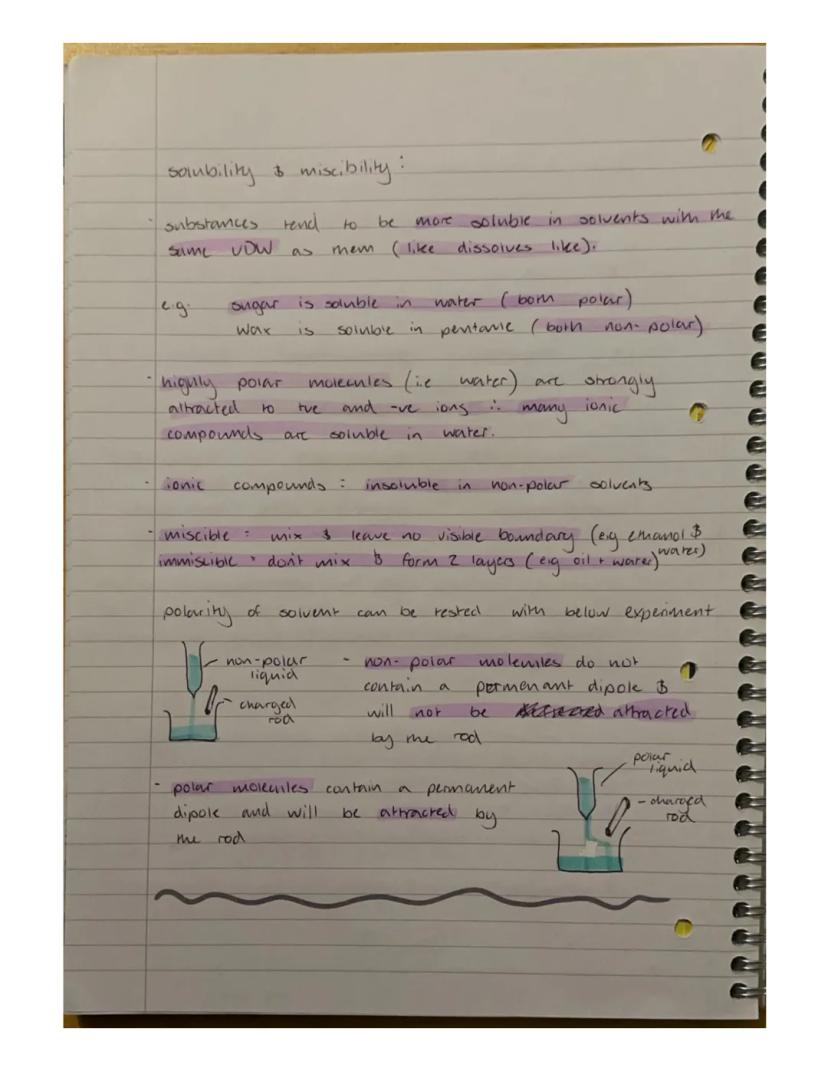 solubility & miscibility:
· substances tend to be more soluble in solvents with the
same VDW as them (like dissolves like).
e.g. sugar is soluble in water (both polar)
wax is soluble in pentane (both non-polar)
· highly polar molecules (i.e water) are strongly
attracted to +ve and -ve ions ∴ many ionic
compounds are soluble in water.
· ionic compounds: insoluble in non-polar solvents
· miscible: mix & leave no visible boundary (e.g ethanol &
water)
immiscible: don't mix & form 2 layers (e.g oil + water)
polarity of solvent can be tested with below experiment
non-polar
liquid
charged
rod
- non-polar molecules do not
contain a permenant dipole &
will not be attracted
by the rod
- polar molecules contain a permanent
dipole and will be attracted by
the rod
polar
liquid
- charged
rod